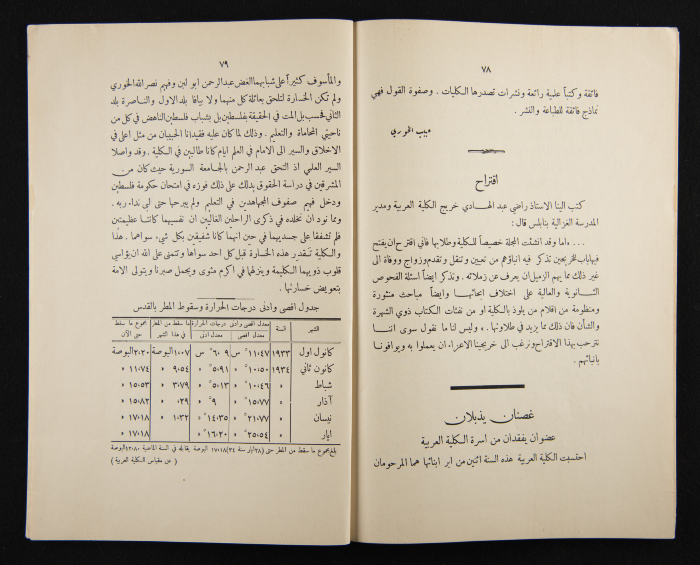 ٧٨
فائقة وكتباً علمية رائعة ونشرات تصدرها الكليات . وصفوة القول فهي
نماذج فائقة للطباعة والنشر .
حبيب الخوري
اقتراح
كتب الينا الاستاذ راضي عبد الهادي خريج الكلية العربية ومدير
المدرسة الغزالية بنابلس قال :
. . . اما وقد انشئت المجلة خصيصاً للكلية وطلابها فاني اقترح ان يفتح
فيها باب للخريجين تذكر فيه انباؤهم من تعيين وتنقل وتقدم وزواج ووفاة الى
غير ذلك مما يهم الزميل ان يعرف عن زملائه . وتذكر ايضاً اسئلة الفحوص
الثانوية والعالية على اختلاف ابحاثها وايضاً مباحث منثورة
ومنظومة من اقلام من يلوذ بالكلية او من نفثات الكتاب ذوي الشهرة
والشأن فان ذلك مما يزيد في طلاوتها . وليس لنا ما نقول سوى اننا
نرحب بهذا الاقتراح ونرغب الى خريجينا الاعزاء ان يعملوا به ويوافونا
بانبائهم .
غصنان يذبلان
عضوان يفقدان من اسرة الكلية العربية
احتسبت الكلية العربية هذه السنة اثنين من ابر ابنائها هما المرحومان
٧٩
والمأسوف كثيراً على شبابهما الغض عبد الرحمن ابو لبن وفهيم نصر الله الخوري
ولم تكن الخسارة لتلحق بعائلة كل منهما ولا بيافا بلد الاول والناصرة بلد
الثاني فحسب بل المت في الحقيقة بفلسطين بل بشباب فلسطين الناهض في كل من
ناحيتي المحاماة والتعليم . وذلك لما كان عليه فقيدانا الحبيبان من مثل اعلى في
الاخلاق والسير الى الامام في العلم ايام كانا طالبين في الكلية . وقد واصلا
السير العلمي اذ التحق عبد الرحمن بالجامعة السورية حيث كان من
المشرقين في دراسة الحقوق يدلك على ذلك فوزه في امتحان حكومة فلسطين
ودخل فهيم صفوف المجاهدين في التعليم ولم يبرحها حتى لبى نداء ربه .
ومما نود ان نخلده في ذكرى الراحلين الغاليين ان نفسيهما كانتا عظيمتين
فلم تشفقا على جسديهما في حين انهما كانا شفيقين بكل شيء سواهما . هذا
والكلية تتقدر هذه الخسارة قبل كل احد سواها وتتمنى على الله ان يؤاسي
قلوب ذويهما الكليمة وينزلهما في اكرم مثوى ويجمل صبرنا ويتولى الامة
بتعويض خسارتها .
جدول اقصى وادنى درجات الحرارة وسقوط المطر بالقدس
الشهر السنة معدل اقصى وادنى درجات الحرارة ما سقط من المطر مجموع ما سقط
معدل اقصى معدل ادنى في هذا الشهر حتى الآن
كانول اول ١٩٣٣ ١١٠٤٧° س ٦٠٩° س ١٠٠٧ البوصة ٢٠٢٠ البوصة
كانون ثاني ١٩٣٤ ١٠٠٥٠° » ٥٠٩١° » ٩٠٥٤ » ١١٠٧٤ »
شباط » ١٠٠٤٦° » ٥٠١٣° » ٣٠٧٩ » ١٥٠٥٣ »
آذار » ١٥٠٧٧° » ٩° » ٠٢٩ » ١٥٠٨٢ »
نيسان » ٢١٠٧٧° » ١٤٠٣٥° » ١٠٣٢ » ١٧٠١٨ »
ايار » ٢٥٠٥٤° » ١٦٠٢٠° » ١٧٠١٨ »
بلغ مجموع ما سقط من المطر حتى (٢٨ ايار سنة ٣٤) ١٧٠١٨ البوصة يقابله في السنة الماضية ١٢٠٨٠ البوصة
( عن مقياس الكلية العربية )